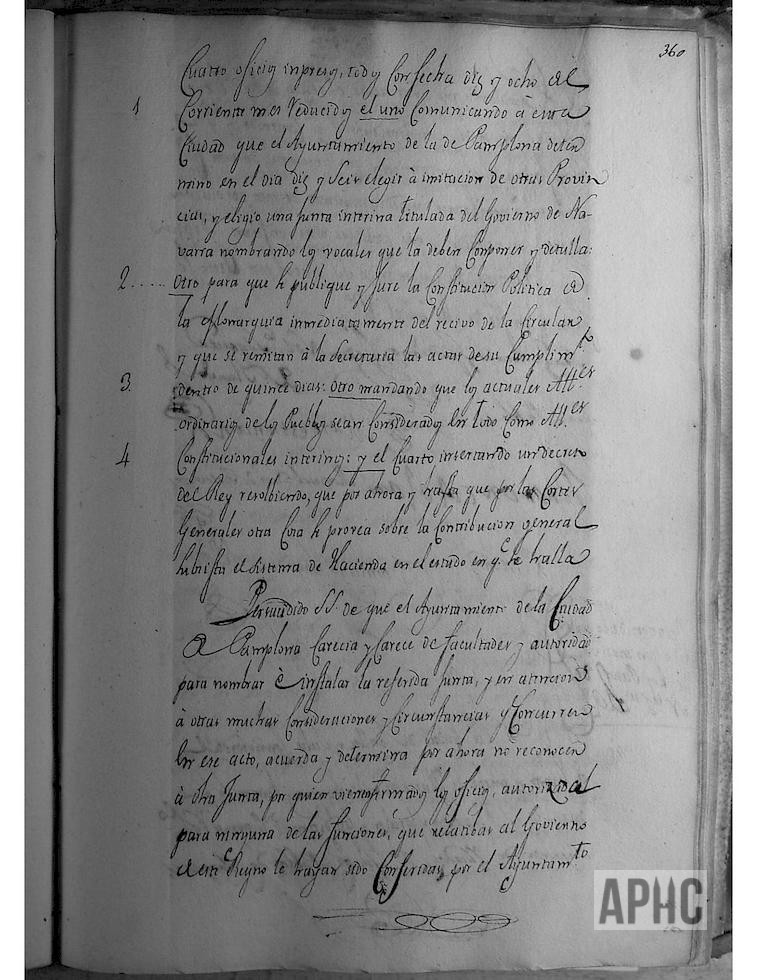 360
Cuatro oficios inpresos, todos con fecha diez y ocho del
1 Corriente mes reducidos el uno Comunicando à esta
Ciudad que el Ayuntamiento de la de Pamplona deter
mino en el dia diez y seis elegir à imitacion de otras Provin
cias, y eligio una Junta interina titulada del Govierno de Na-
varra nombrando los vocales que la deben Conponer y detalla:
2..... Otro para que se publique y Jure la Constitucion Politica de
la Monarquia inmediatamente del recivo de la Circular
y que se remitan à la Secretaria las actas de su Cumplim.to
3 dentro de quince dias: Otro mandando que los actuales All.es
ordinarios de los Pueblos sean Considerados en todo Como All.es
4 Constitucionales interinos: y el Cuarto insertando un decreto
del Rey resolbiendo, que por ahora y hasta que por las Cortes
Generales otra Cosa se provea sobre la Contribucion general
subsista el sistema de Hacienda en el estado en q.e se halla
Persuadido SS. de que el Ayuntamiento de la Ciudad
de Pamplona Carecia y Carece de facultades y autoridad
para nombrar è instalar la referida Junta, y en atencion
à otras muchas Consideraciones y Circunstancias q.e Concurren
en ese acto, acuerda y determina por ahora no reconocer
à otra Junta, por quien vienen firmados los oficios, autorizada
para ninguna de las funciones, que relatibas al Govierno
de este Reyno le hayan sido Conferidas por el Ayuntam.to
APHC